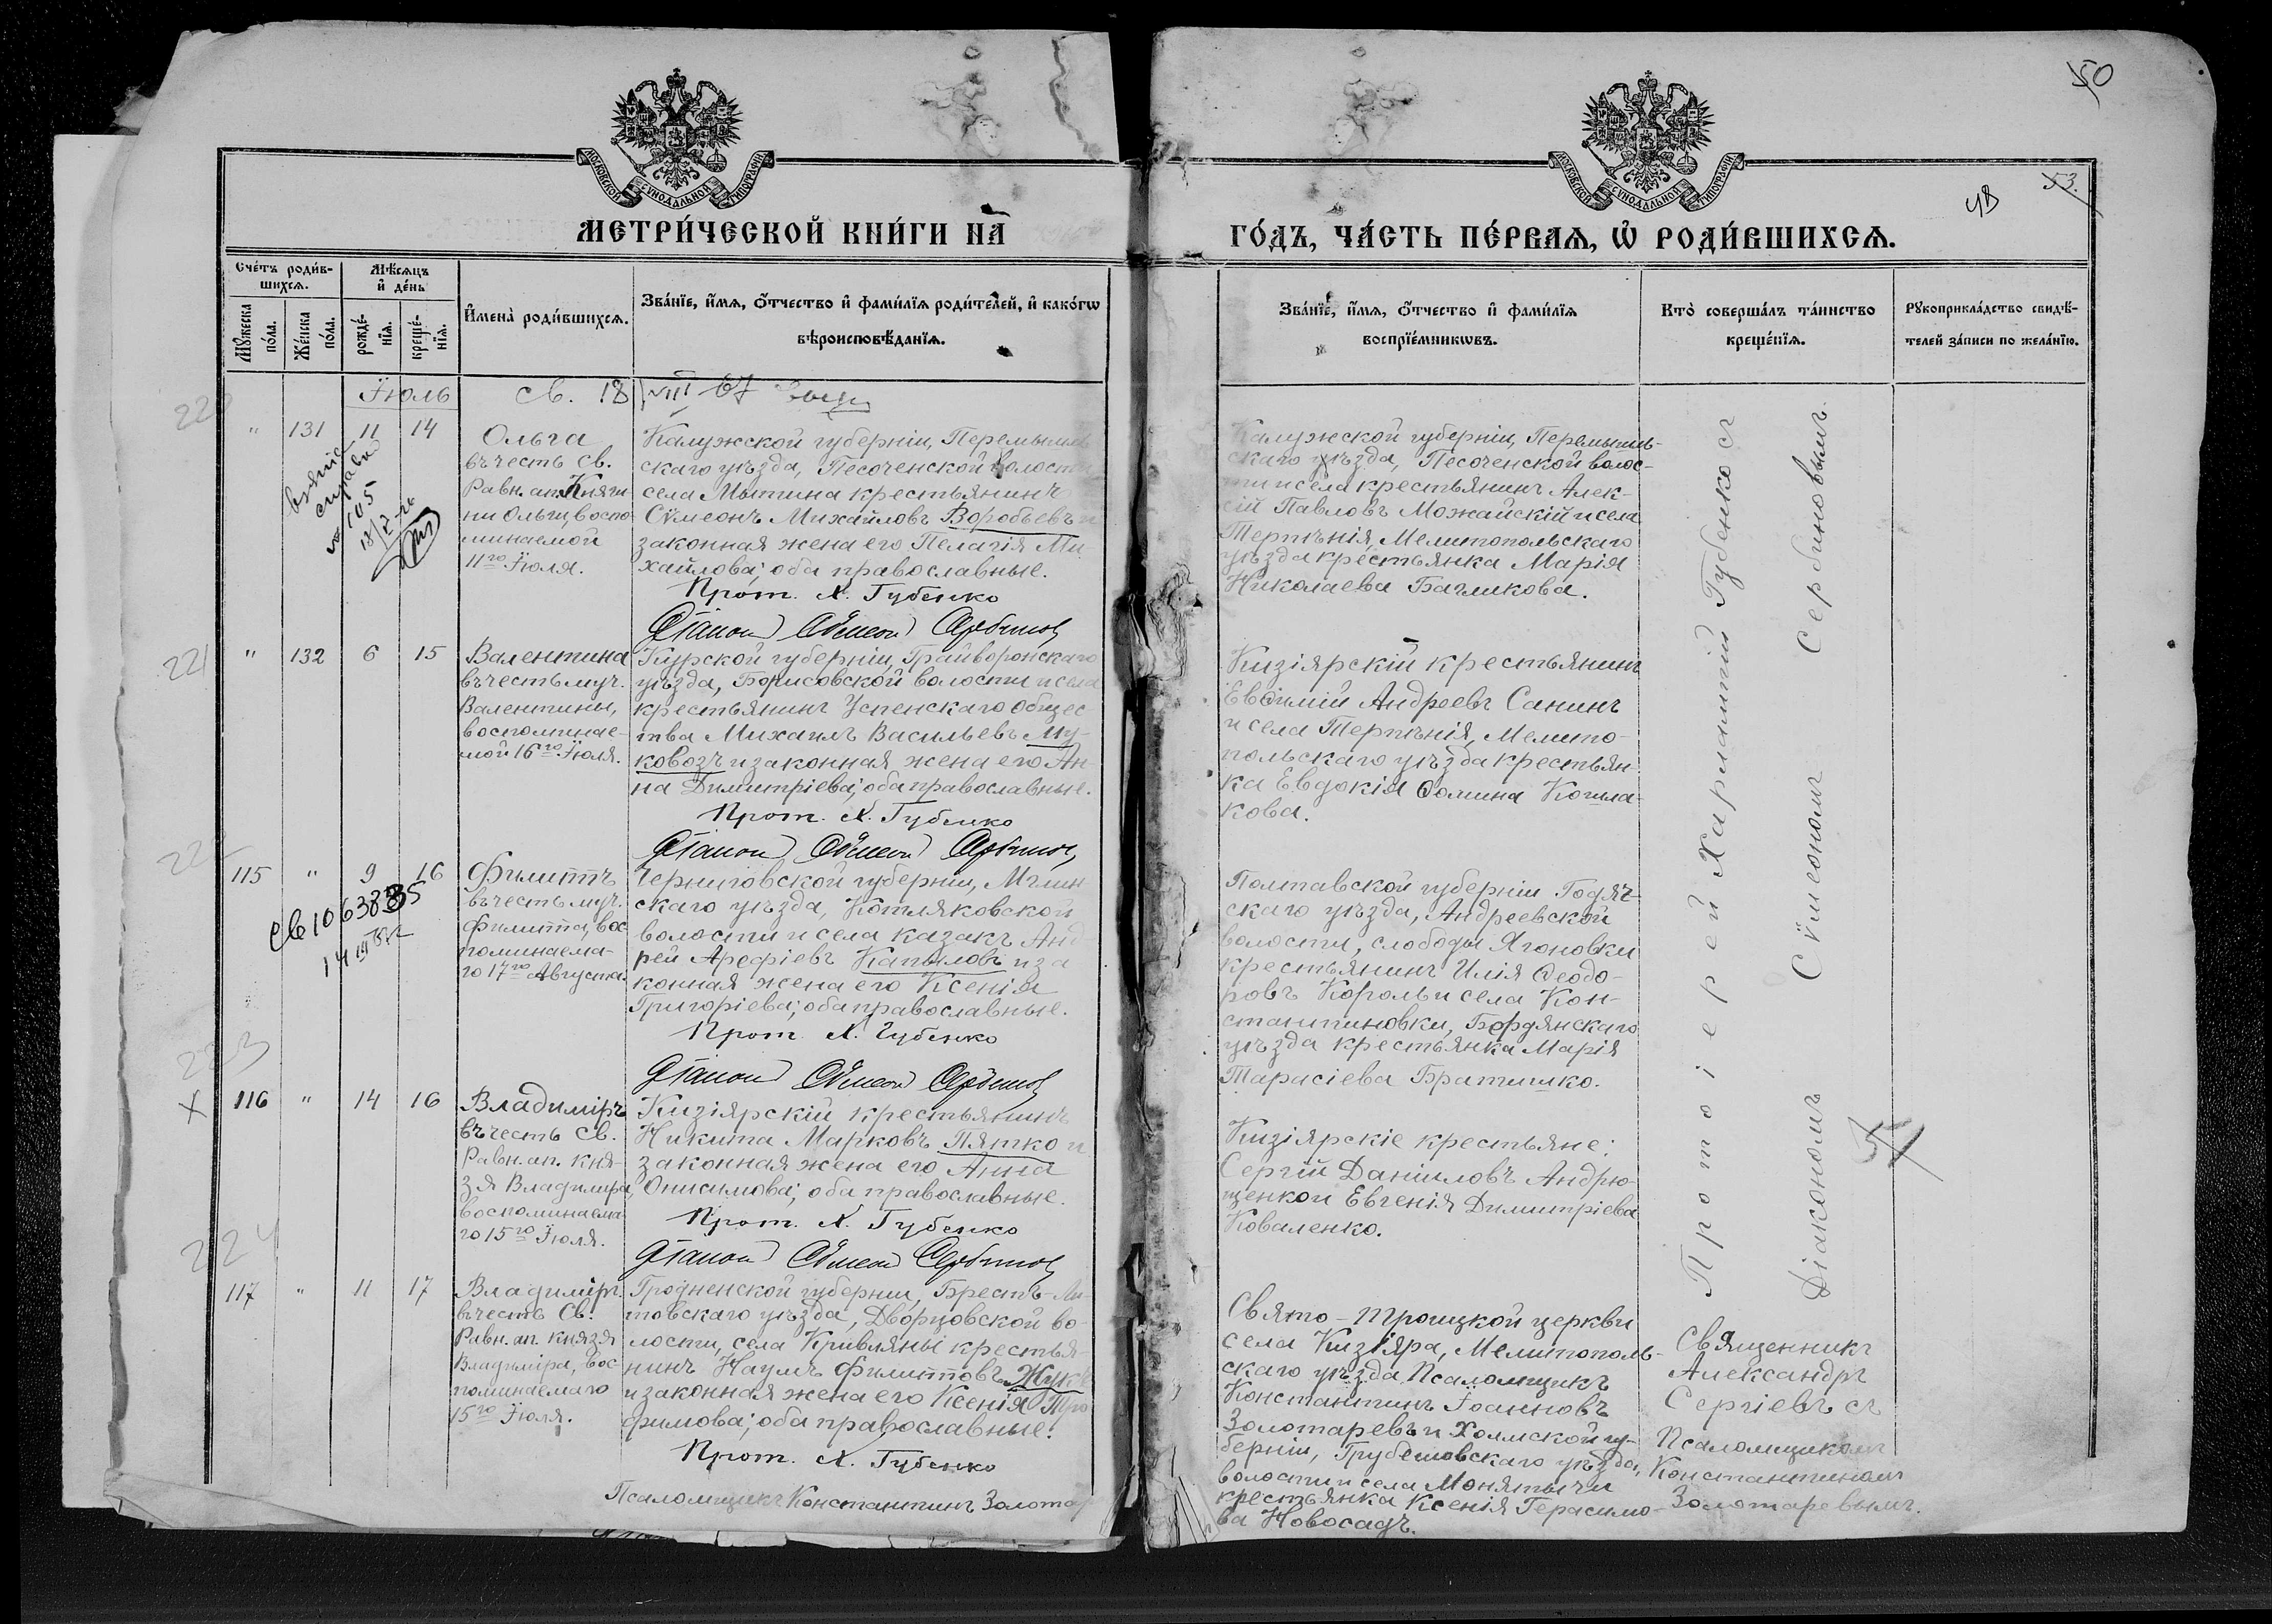 50
53.
МОСКОВСКОЙ СУНОДАЛЬНОЙ ТИПОГРАФІИ
МОСКОВСКОЙ СУНОДАЛЬНОЙ ТИПОГРАФІИ
МЕТРИ́ЧЕСКОЙ КНИ́ГИ НА̀
ГО́ДЪ, ЧА́СТЬ ПЕ́РВАѦ, Ѡ҆ РОДИ́ВШИХСѦ.
Сче́тъ роди́в-
шихсѧ.
Мѣ́сѧцъ
и҆ де́нь
Мꙋ́жеска по́ла.
Же́нска по́ла.
рожде́-
нїѧ.
креще́-
нїѧ.
И҆мена̀ роди́вшихсѧ.
Зва́нїе, и҆́мѧ, ѻ҆́тчество и҆ фами́лїѧ роди́телей, и҆ како́гѡ
вѣроисповѣ́данїѧ.
Зва́нїе, и҆́мѧ, ѻ҆́тчество и҆ фами́лїѧ
воспрїе́мникѡвъ.
Кто̀ соверша́лъ та́инство
креще́нїѧ.
Рꙋкоприкла́дство свидѣ́-
телей за́писи по жела́нїю.
Іюль
св. 18 VIII 67
" 131 11 14
Ольга
въ честь св.
Равн. ап. Княги
ни Ольги, воспо
минаемой
11го Іюля.
Калужской губерніи, Перемышль
скаго уѣзда, Песоченской волости
села Мытина крестьянинъ
Сѵмеонъ Михайловъ Воробьевъ и
законная жена его Пелагія Ми
хайлова; оба православные.
Прот. Х. Губенко
Діаконъ Сѵмеонъ Сербиновъ
Калужской губерніи, Перемышль-
скаго уѣзда, Песоченской волос-
ти и села крестьянинъ Алек-
сій Павловъ Можайскій и села
Терпѣнія, Мелитопольскаго
уѣзда крестьянка Марія
Николаева Бачликова.
221
" 132 6 15
Валентина
въ честь муч.
Валентины,
воспоминае-
мой 16го Іюля.
Курской губерніи, Грайворонскаго
уѣзда, Борисовской волости и села
крестьянинъ Успенскаго общес
тва Михаилъ Васильевъ Му-
ковозъ и законная жена его Ан-
на Димитріева; оба православные.
Прот. Х. Губенко
Діаконъ Сѵмеонъ Сербиновъ
Кизіярскій крестьянинъ
Евѳимій Андреевъ Санинъ
и села Терпѣнія, Мелито-
польскаго уѣзда крестьян-
ка Евдокія Ѳомина Кошла-
кова.
115 " 9 16
Филиппъ
въ честь муч.
Филиппа, вос
поминаема-
го 17го Августа.
Черниговской губерніи, Мглин
скаго уѣзда, Котляковской
волости и села казакъ Анд
рей Арефіевъ Капыловъ и за
конная жена его Ксенія
Григоріева; оба православные.
Прот. Х. Губенко
Діаконъ Сѵмеонъ Сербиновъ
Полтавской губерніи Годяч-
скаго уѣзда, Андреевской
волости, слободы Ягоновки
крестьянинъ Илія Ѳеодо-
ровъ Король и села Кон-
стантиновки, Бердянскаго
уѣзда крестьянка Марія
Тарасіева Братишко.
223
116 " 14 16
Владиміръ
въ честь св.
Равн. ап. кня-
зя Владиміра,
воспоминаема
го 15го Іюля.
Кизіярскій крестьянинъ
Никита Марковъ Пятко и
законная жена его Анна
Онисимова; оба православные.
Прот. Х. Губенко
Діаконъ Сѵмеонъ Сербиновъ
Кизіярскіе крестьяне:
Сергій Даніиловъ Андрю-
щенко и Евгенія Димитріева
Коваленко.
Протоіерей Харлампій Губенко съ
Діакономъ Сѵмеономъ Сербиновымъ.
224
117 " 11 17
Владиміръ
въ честь св.
Равн. ап. князя
Владиміра, вос-
поминаемаго
15го Іюля.
Гродненской губерніи, Брестъ-Ли-
товскаго уѣзда, Дворцовской во-
лости, села Кривляны крестья-
нинъ Наумъ Филипповъ Жукъ
и законная жена его Ксенія Тро
фимова; оба православные.
Прот. Х. Губенко
Псаломщикъ Константинъ Золотар
Свято-Троицкой церкви
села Кизіяра, Мелитополь-
скаго уѣзда Псаломщикъ
Константинъ Іоанновъ
Золотаревъ и Холмской гу-
берніи, Грубешовскаго уѣзда,
волости и села Монятычи
крестьянка Ксенія Герасимо-
ва Новосадъ.
Священникъ
Александръ
Сергіевъ съ
Псаломщикомъ
Константиномъ
Золотаревымъ.